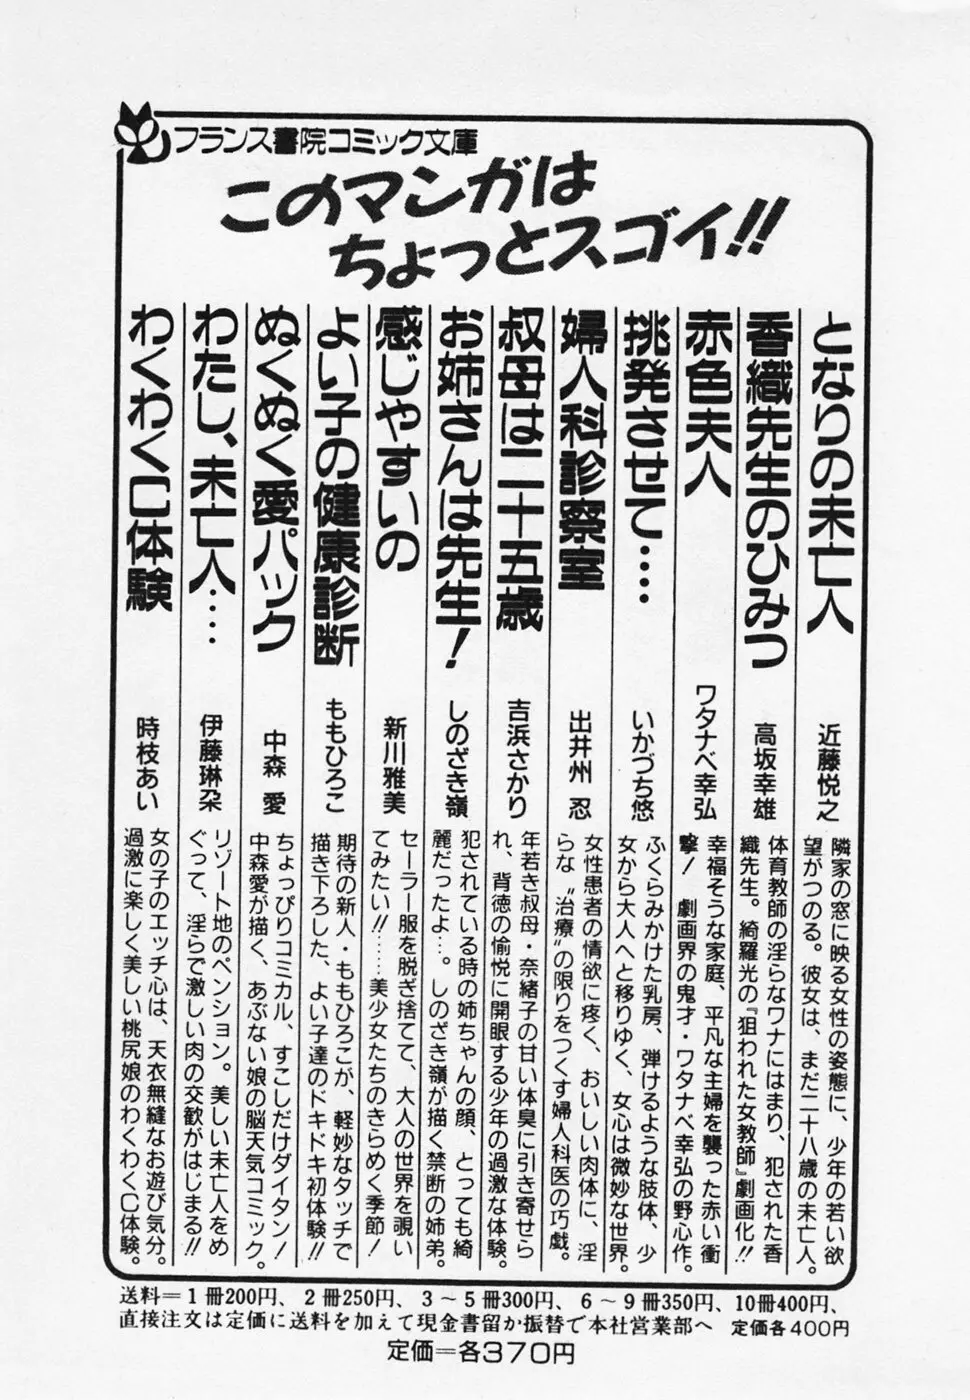 フランス書院コミック文庫
このマンガは
ちょっとスゴイ!!
となりの未亡人
近藤悦之
隣家の窓に映る女性の姿態に、少年の若い欲
望がつのる。彼女は、まだ二十八歳の未亡人。
香織先生のひみつ
高坂幸雄
体育教師の淫らなワナにはまり、犯された香
織先生。綺羅光の『狙われた女教師』劇画化!!
赤色夫人
ワタナベ幸弘
幸福そうな家庭、平凡な主婦を襲った赤い衝
撃! 劇画界の鬼才・ワタナベ幸弘の野心作。
挑発させて‥‥
いかづち悠
ふくらみかけた乳房、弾けるような肢体、少
女から大人へと移りゆく、女心は微妙な世界。
婦人科診察室
出井州 忍
女性患者の情欲に疼く、おいしい肉体に、淫
らな〝治療〟の限りをつくす婦人科医の巧戯。
叔母は二十五歳
吉浜さかり
年若き叔母・奈緒子の甘い体臭に引き寄せら
れ、背徳の愉悦に開眼する少年の過激な体験。
お姉さんは先生!
しのざき嶺
犯されている時の姉ちゃんの顔、とっても綺
麗だったよ…。しのざき嶺が描く禁断の姉弟。
感じやすいの
新川雅美
セーラー服を脱ぎ捨てて、大人の世界を覗い
てみたい!!……美少女たちのきらめく季節!
よい子の健康診断
ももひろこ
期待の新人・ももひろこが、軽妙なタッチで
描き下ろした、よい子達のドキドキ初体験!!
ぬくぬく愛パック
中森 愛
ちょっぴりコミカル、すこしだけダイタン!
中森愛が描く、あぶない娘の脳天気コミック。
わたし、未亡人‥‥
伊藤琳朶
リゾート地のペンション。美しい未亡人をめ
ぐって、淫らで激しい肉の交歓がはじまる!!
わくわくC体験
時枝あい
女の子のエッチ心は、天衣無縫なお遊び気分。
過激に楽しく美しい桃尻娘のわくわくC体験。
送料=1冊200円、2冊250円、3～5冊300円、6～9冊350円、10冊400円、
直接注文は定価に送料を加えて現金書留か振替で本社営業部へ 定価各400円
定価=各370円